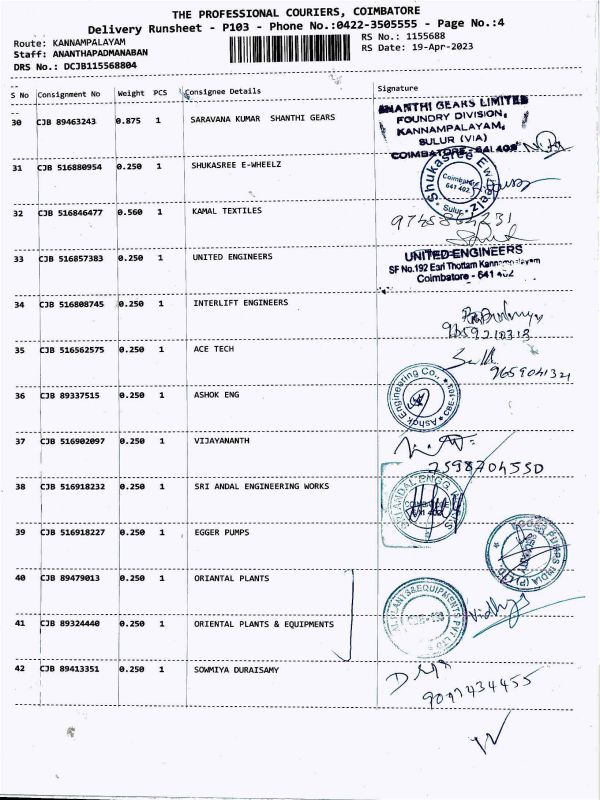 THE PROFESSIONAL COURIERS, COIMBATORE
Delivery Runsheet - P103 - Phone No.:0422-3505555 - Page No.:4
Route: KANNAMPALAYAM RS No.: 1155688
Staff: ANANTHAPADMANABAN RS Date: 19-Apr-2023
DRS No.: DCJB115568804
S No Consignment No Weight PCS Consignee Details Signature
30 CJB 89463243 0.875 1 SARAVANA KUMAR SHANTHI GEARS
SHANTHI GEARS LIMITED
FOUNDRY DIVISION,
KANNAMPALAYAM,
SULUR (VIA)
COIMBATORE - 641 402
31 CJB 516880954 0.250 1 SHUKASREE E-WHEELZ
Shukasree Ewheelz
Coimbatore
641 402
Sulur
32 CJB 516846477 0.560 1 KAMAL TEXTILES
33 CJB 516857383 0.250 1 UNITED ENGINEERS
UNITED ENGINEERS
SF No.192 Earl Thottam Kannampalayam
Coimbatore - 641 402
34 CJB 516808745 0.250 1 INTERLIFT ENGINEERS
9659210313
35 CJB 516562575 0.250 1 ACE TECH
9659041321
36 CJB 89337515 0.250 1 ASHOK ENG
Ashok Engineering Co.,
37 CJB 516902097 0.250 1 VIJAYANANTH
7598704550
38 CJB 516918232 0.250 1 SRI ANDAL ENGINEERING WORKS
SRI ANDAL ENGG WORKS
39 CJB 516918227 0.250 1 EGGER PUMPS
EGGER PUMPS INDIA (P) LTD.
40 CJB 89479013 0.250 1 ORIANTAL PLANTS
41 CJB 89324440 0.250 1 ORIENTAL PLANTS & EQUIPMENTS
PLANTS & EQUIPMENTS PVT LTD
Vidhya
42 CJB 89413351 0.250 1 SOWMIYA DURAISAMY
9097434455